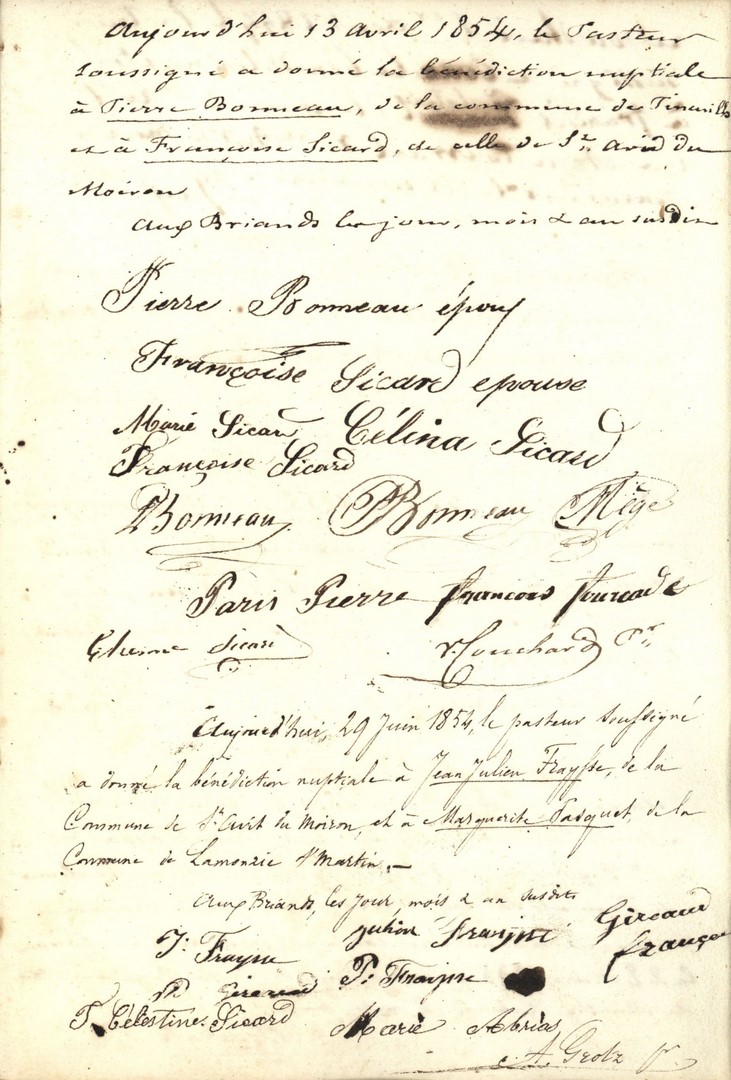 Aujourd'hui 13 avril 1854, le Pasteur
soussigné a donné la bénédiction nuptiale
à Pierre Bonneau, de la commune de
et à Françoise Sicard, de celle de St. Avid du
Moiron
Aux Briands les jour, mois & an susdits
Pierre Bonneau époux
Françoise Sicard epouse
Marie Sicard Célina Sicard
Françoise Sicard
PBonneau PBonneau Mège
Paris Pierre françois fourcade
Etienne Sicard Couchard Pr
Aujourd'hui, 29 Juin 1854, le pasteur soussigné
a donné la bénédiction nuptiale à Jean Julien Fraysse, de la
Commune de St Avit du Moiron, et à Marguerite Pasquet, de la
Commune de Lamonzie St Martin. —
Aux Briands, les jour, mois & an susdits
J. Fraysse Julien Gireaud
françois
P. Fraysse
Célestine Sicard Marie Abrias
A. Grotz pr.